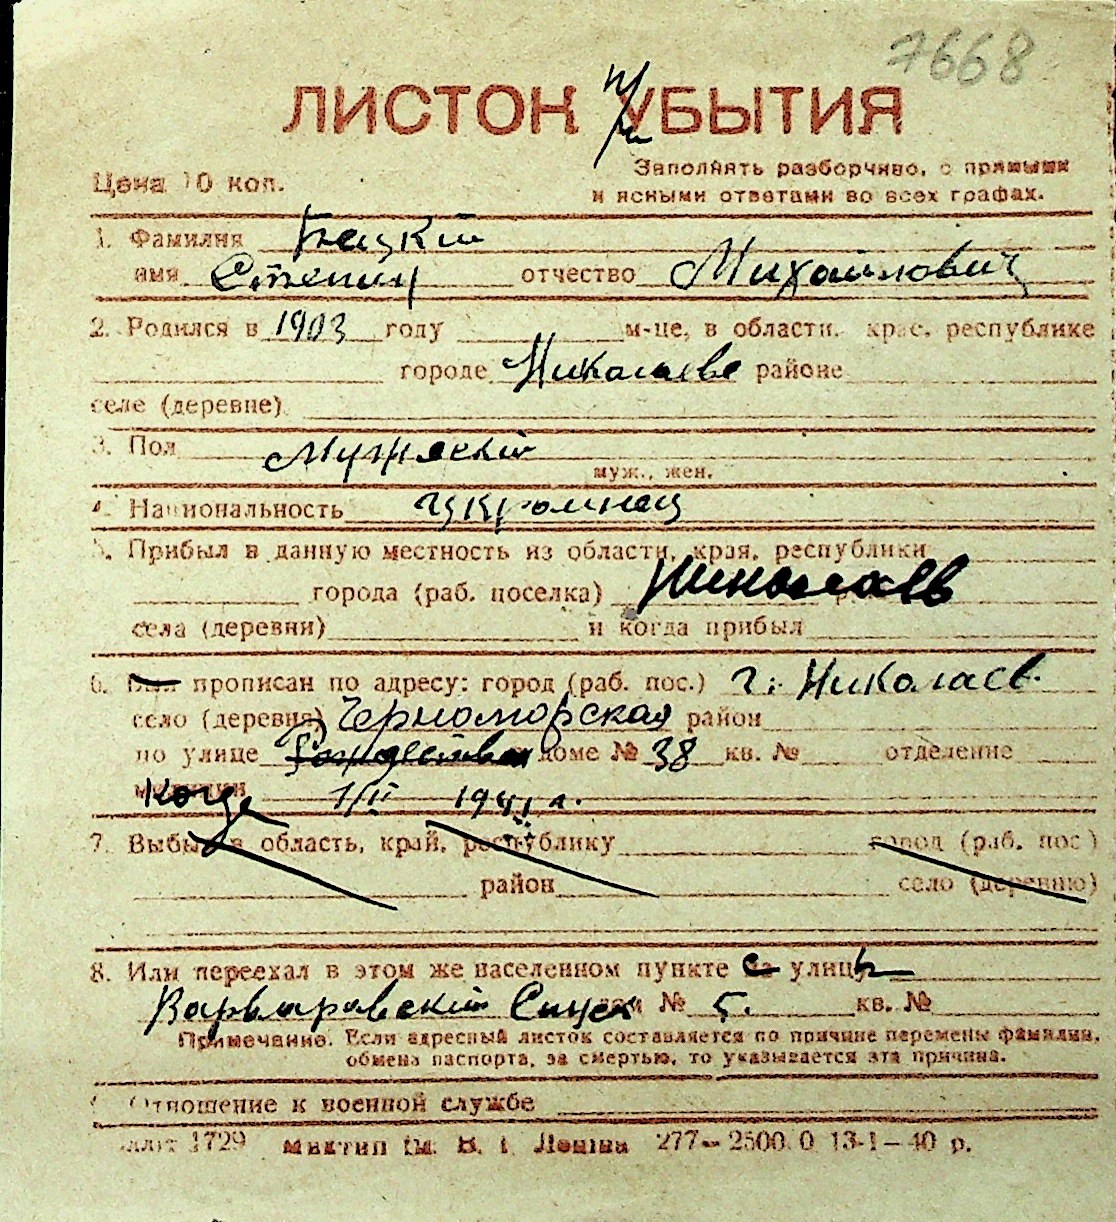 7668
ЛИСТОК УБЫТИЯ
Цена 10 коп.
Заполнять разборчиво, с прямыми
и ясными ответами во всех графах.
1. Фамилия Бецкий
имя Степан отчество Михайлович
2. Родился в 1903 году м-це, в области, крае, республике
городе Николаеве районе
селе (деревне)
3. Пол Мужской
муж., жен.
4. Национальность украинец
5. Прибыл в данную местность из области, края, республики
города (раб. поселка) Николаев
села (деревни) и когда прибыл
6. Был прописан по адресу: город (раб. пос.) г. Николаев
село (деревня) Черноморская район
по улице Рождествен доме № 38 кв. № отделение
милиции Когда 1/II 1941 г.
7. Выбыл в область, край, республику город (раб. пос.)
район село (деревню)
8. Или переехал в этом же населенном пункте с улицы
Варваровский Спуск дом № 5. кв. №
Примечание. Если адресный листок составляется по причине перемены фамилии,
обмена паспорта, за смертью, то указывается эта причина.
Отношение к военной службе
1729 им. В. І. Леніна 277—2500.0 13-1—40 р.